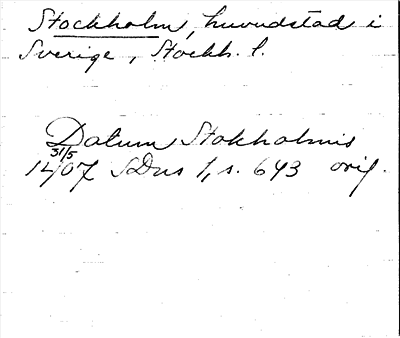 Stockholm, huvudstad i
Sverige, Stockh. l.
Datum Stokholmis
31/5
1407 SDns 1, s. 643 orig.